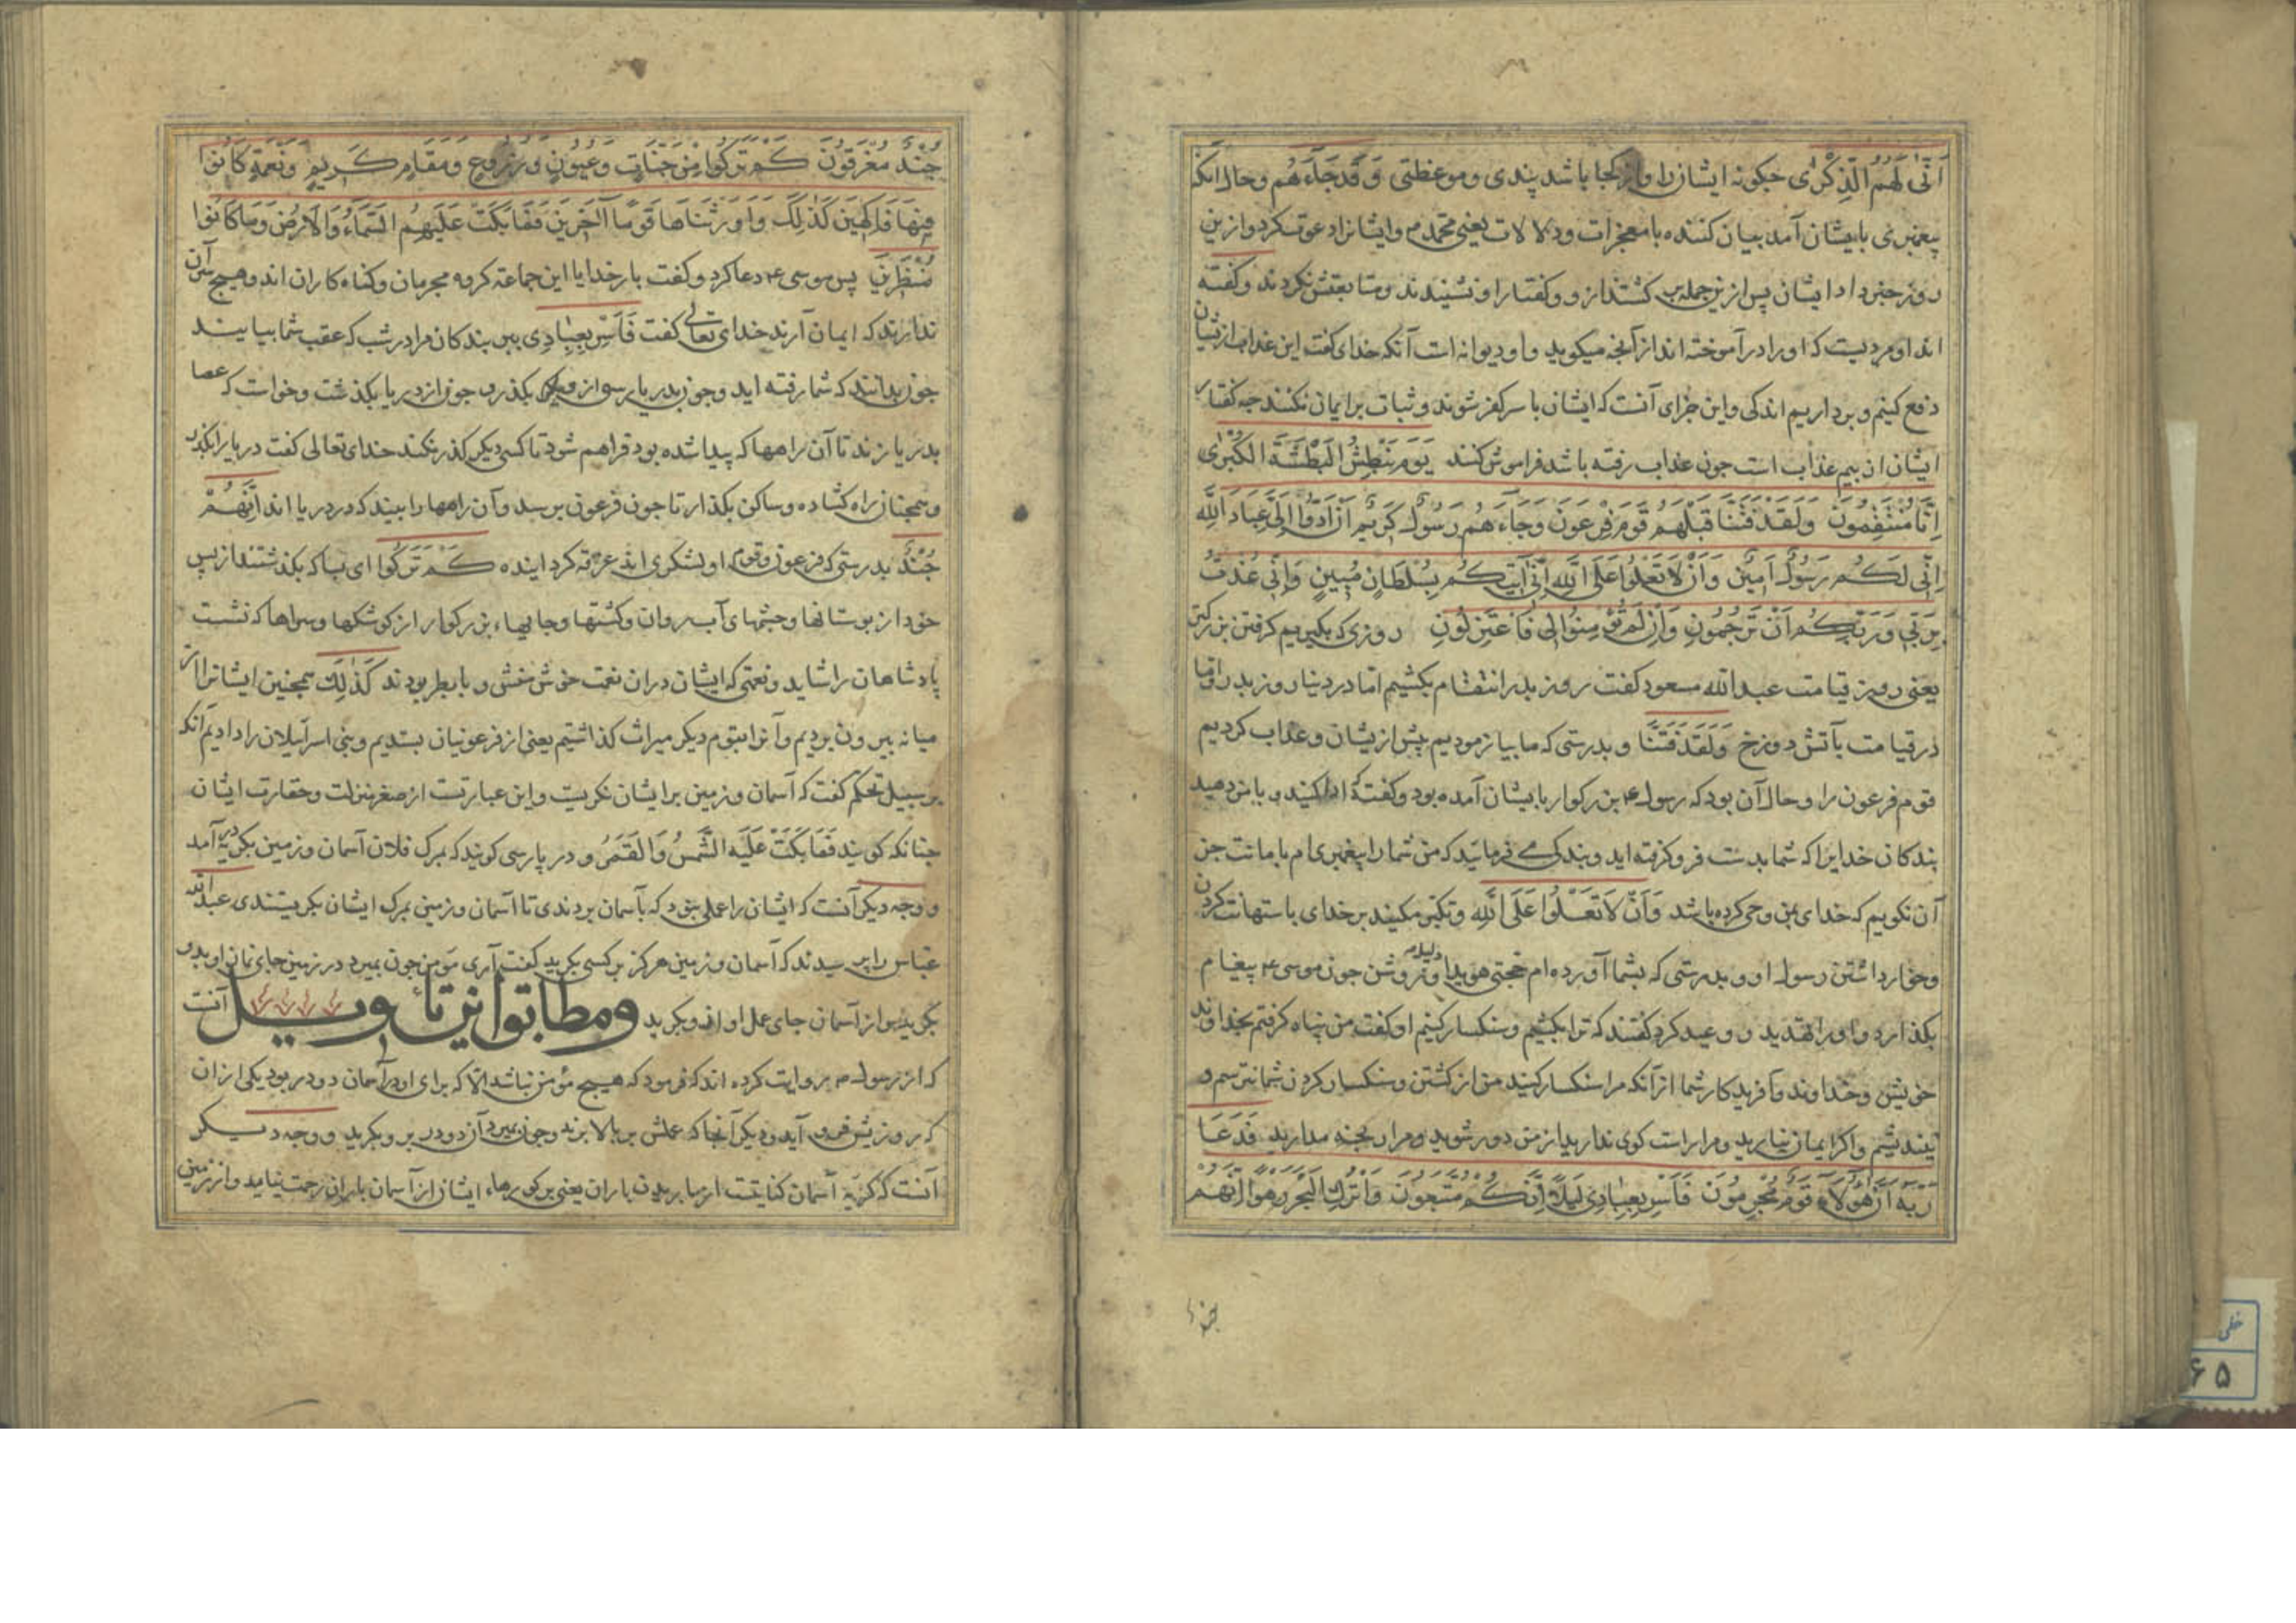 اَنّٰی لَهُمُ الذِّکْرٰی چکونه ایشان را و از کجا باشد پندی و موعظتی وَقَدْ جَآءَهُمْ و حال آنکه
پیغمبری بایشان آمد بیان کننده با معجزات و دلالات یعنی محمد م و ایشانرا دعوت کرد و ازین
روز خبر داد ایشان پس از ین جمله بر کشتند از و و کفتار او نشنیدند و متابعتش نکردند و کفته
اند او مردیست که او را در آموخته اند از آنچه میکوید و او دیوانه است آنکه خدای کفت این عذاب از یشان
دفع کنیم و برداریم اندکی و این جزای آنست که ایشان با سر کفر شوند و ثبات بر ایمان نکنند چه کفتار
ایشان از بیم عذاب است جون عذاب رفته باشد فراموش کنند یَوْمَ نَبْطِشُ الْبَطْشَةَ الْکُبْرٰی
اِنَّا مُنْتَقِمُونَ وَلَقَدْ فَتَنَّا قَبْلَهُمْ قَوْمَ فِرْعَوْنَ وَجَآءَهُمْ رَسُولٌ کَرِیْمٌ اَنْ اَدُّوْا اِلَیَّ عِبَادَ اللّٰهِ
اِنِّی لَکُمْ رَسُولٌ اَمِیْنٌ وَاَنْ لَا تَعْلُوْا عَلَی اللّٰهِ اِنِّی اٰتِیْکُمْ بِسُلْطَانٍ مُبِیْنٍ وَاِنِّی عُذْتُ
بِرَبِّی وَرَبِّکُمْ اَنْ تَرْجُمُونِ وَاِنْ لَمْ تُؤْمِنُوا لِی فَاعْتَزِلُونِ روزی که بکیریم کرفتن بزرکتر
یعنی روز قیامت عبد الله مسعود کفت روز بدر انتقام بکشیم اما در دنیا روز بدر و اما
در قیامت بآتش دوزخ وَلَقَدْ فَتَنَّا و بدرستی که ما بیازمودیم پیش از یشان و عذاب کردیم
قوم فرعون را و حال آن بود که رسول ع بزرکوار بایشان آمده بود و کفت که ادا کنید و باز دهید
بندکان خدایرا که شما بدست فرو کرفته اید و بندکی می فرمائید که من شما را پیغمبری ام با امانت جز
آن نکویم که خدای بمن وحی کرده باشد وَاَنْ لَا تَعْلُوْا عَلَی اللّٰهِ و تکبر مکنید بر خدای باستهانت کردن
و خوار داشتن رسول او و بدرستی که بشما آورده ام حجتی هویدا و دلیلی روشن جون موسی ع پیغام
بکذارد و او را تهدید و وعید کرد کفتند که ترا بکشیم و سنکسار کنیم او کفت من پناه کرفتم بخداوند
خویش و خداوند و آفریدکار شما از آنکه مرا سنکسار کنید من از کشتن و سنکسار کردن شما نترسم و
نیندیشم و اکر ایمان نیارید و مرا راست کوی ندارید از من دور شوید و مرا رنجه مدارید فَدَعَا
رَبَّهُ اَنَّ هٰؤُلَآءِ قَوْمٌ مُجْرِمُونَ فَاَسْرِ بِعِبَادِی لَیْلًا اِنَّکُمْ مُتَّبَعُونَ وَاتْرُكِ الْبَحْرَ رَهْوًا اِنَّهُمْ
جُنْدٌ مُغْرَقُونَ کَمْ تَرَکُوا مِنْ جَنَّاتٍ وَعُیُونٍ وَزُرُوعٍ وَمَقَامٍ کَرِیْمٍ وَنَعْمَةٍ کَانُوا
فِیْهَا فَاکِهِیْنَ کَذٰلِكَ وَاَوْرَثْنَاهَا قَوْمًا اٰخَرِیْنَ فَمَا بَکَتْ عَلَیْهِمُ السَّمَآءُ وَالْاَرْضُ وَمَا کَانُوا
مُنْظَرِیْنَ پس موسی ع دعا کرد و کفت بار خدایا این جماعة کروه مجرمان و کناه کاران اند و هیچ سر آن
ندارند که ایمان آرند خدای تعالی کفت فَاَسْرِ بِعِبَادِی ببر بندکان مرا در شب که عقب شما بیایند
جون بدانند که شما رفته اید و جون بدریا رسی از بکذری جون از دریا بکذشت و خواست که عصا
بدریا زند تا آن راهها که پیدا شده بود فراهم شود تا کسی دیکر کذر نکند خدای تعالی کفت دریا را بکذار
و همجنان راه کشاده و ساکن بکذار تا جون فرعون برسد و آن راهها را ببیند که در دریا اند اِنَّهُمْ
جُنْدٌ بدرستی که فرعون و قوم او لشکری اند غرقه کرد اینده کَمْ تَرَکُوا ای بسا که بکذشتند از پس
خود از بوستانها و چشمهای آب روان و کشتها و جایهاء بزرکوار از کوشکها و سراها که نشست
پادشاهان را شاید و نعمتی که ایشان در آن نعمت خوش منش و با بطر بودند کَذٰلِكَ همجنین ایشانرا از
میانه بیرون بردیم و آنرا بقوم دیکر میراث کذاشتیم یعنی از فرعونیان بستدیم و بنی اسرائیلان را دادیم آنکه
بر سبیل تحکم کفت که آسمان و زمین بر ایشان نکریست و این عبارتست از صغر منزلت و حقارت ایشان
جنانکه کویند فَمَا بَکَتْ عَلَیْهِ الشَّمْسُ وَالْقَمَرُ و در پارسی کویند که بمرک فلان آسمان و زمین بکریه در آمد
و وجه دیکر آنست که ایشان را عملی نبود که بآسمان بردندی تا آسمان و زمین بمرک ایشان بکریستندی عبد الله
عباس را پرسیدند که آسمان و زمین هرکز بر کسی بکرید کفت آری مؤمن جون بمیرد در زمین جای نماز او بدو
بکرید و از آسمان جای عمل او بدو بکرید و مطابق این تأویل آنست
که از رسول م روایت کرده اند که فرمود که هیچ مؤمن نباشد الا که برای او در آسمان دو در بود یکی از آن
که روزیش فرو آید و دیکر آنجا که عملش بر بالا برند و جون بمیرد آن دو در برو بکرید و وجه دیکر
آنست که کریه آسمان کنایتست از باریدن باران یعنی بر کورهاء ایشان از آسمان باران رحمت نیامد و از زمین
جند
خطی
۶۵